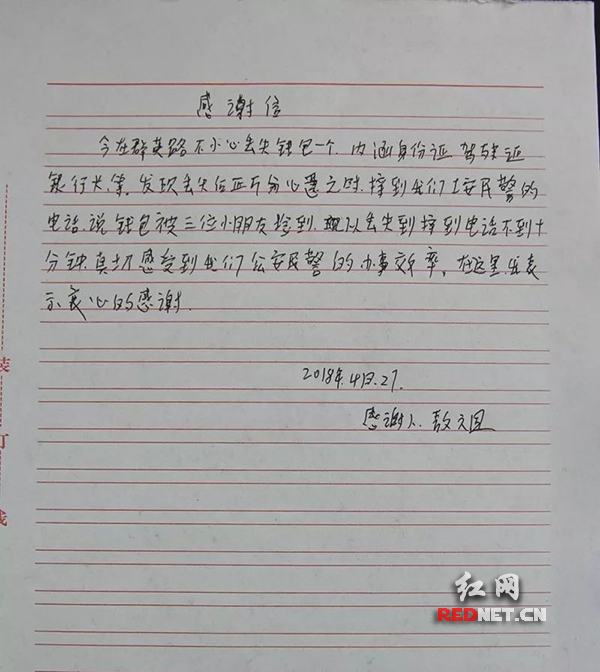 感谢信
今在群英路不小心丢失钱包一个.内涵身份证 驾驶证
银行卡.等.发现丢失后正万分心急之时.接到我们公安民警的
电话.说钱包被三位小朋友捡到.从丢失到接到电话不到十
分钟.真切感受到我们公安民警的办事效率。在这里.我表
示衷心的感谢.
2018年.4月.27.
感谢人.敖文
装
订
线
红网
REDNET.CN